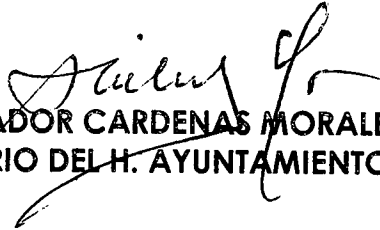 ADOR CARDENAS MORALE
RIO DEL H. AYUNTAMIENTO